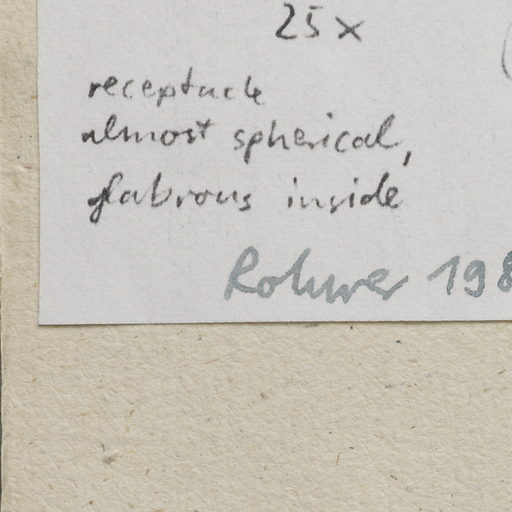 25 x
receptacle
almost spherical,
glabrous inside
Rohwer 198